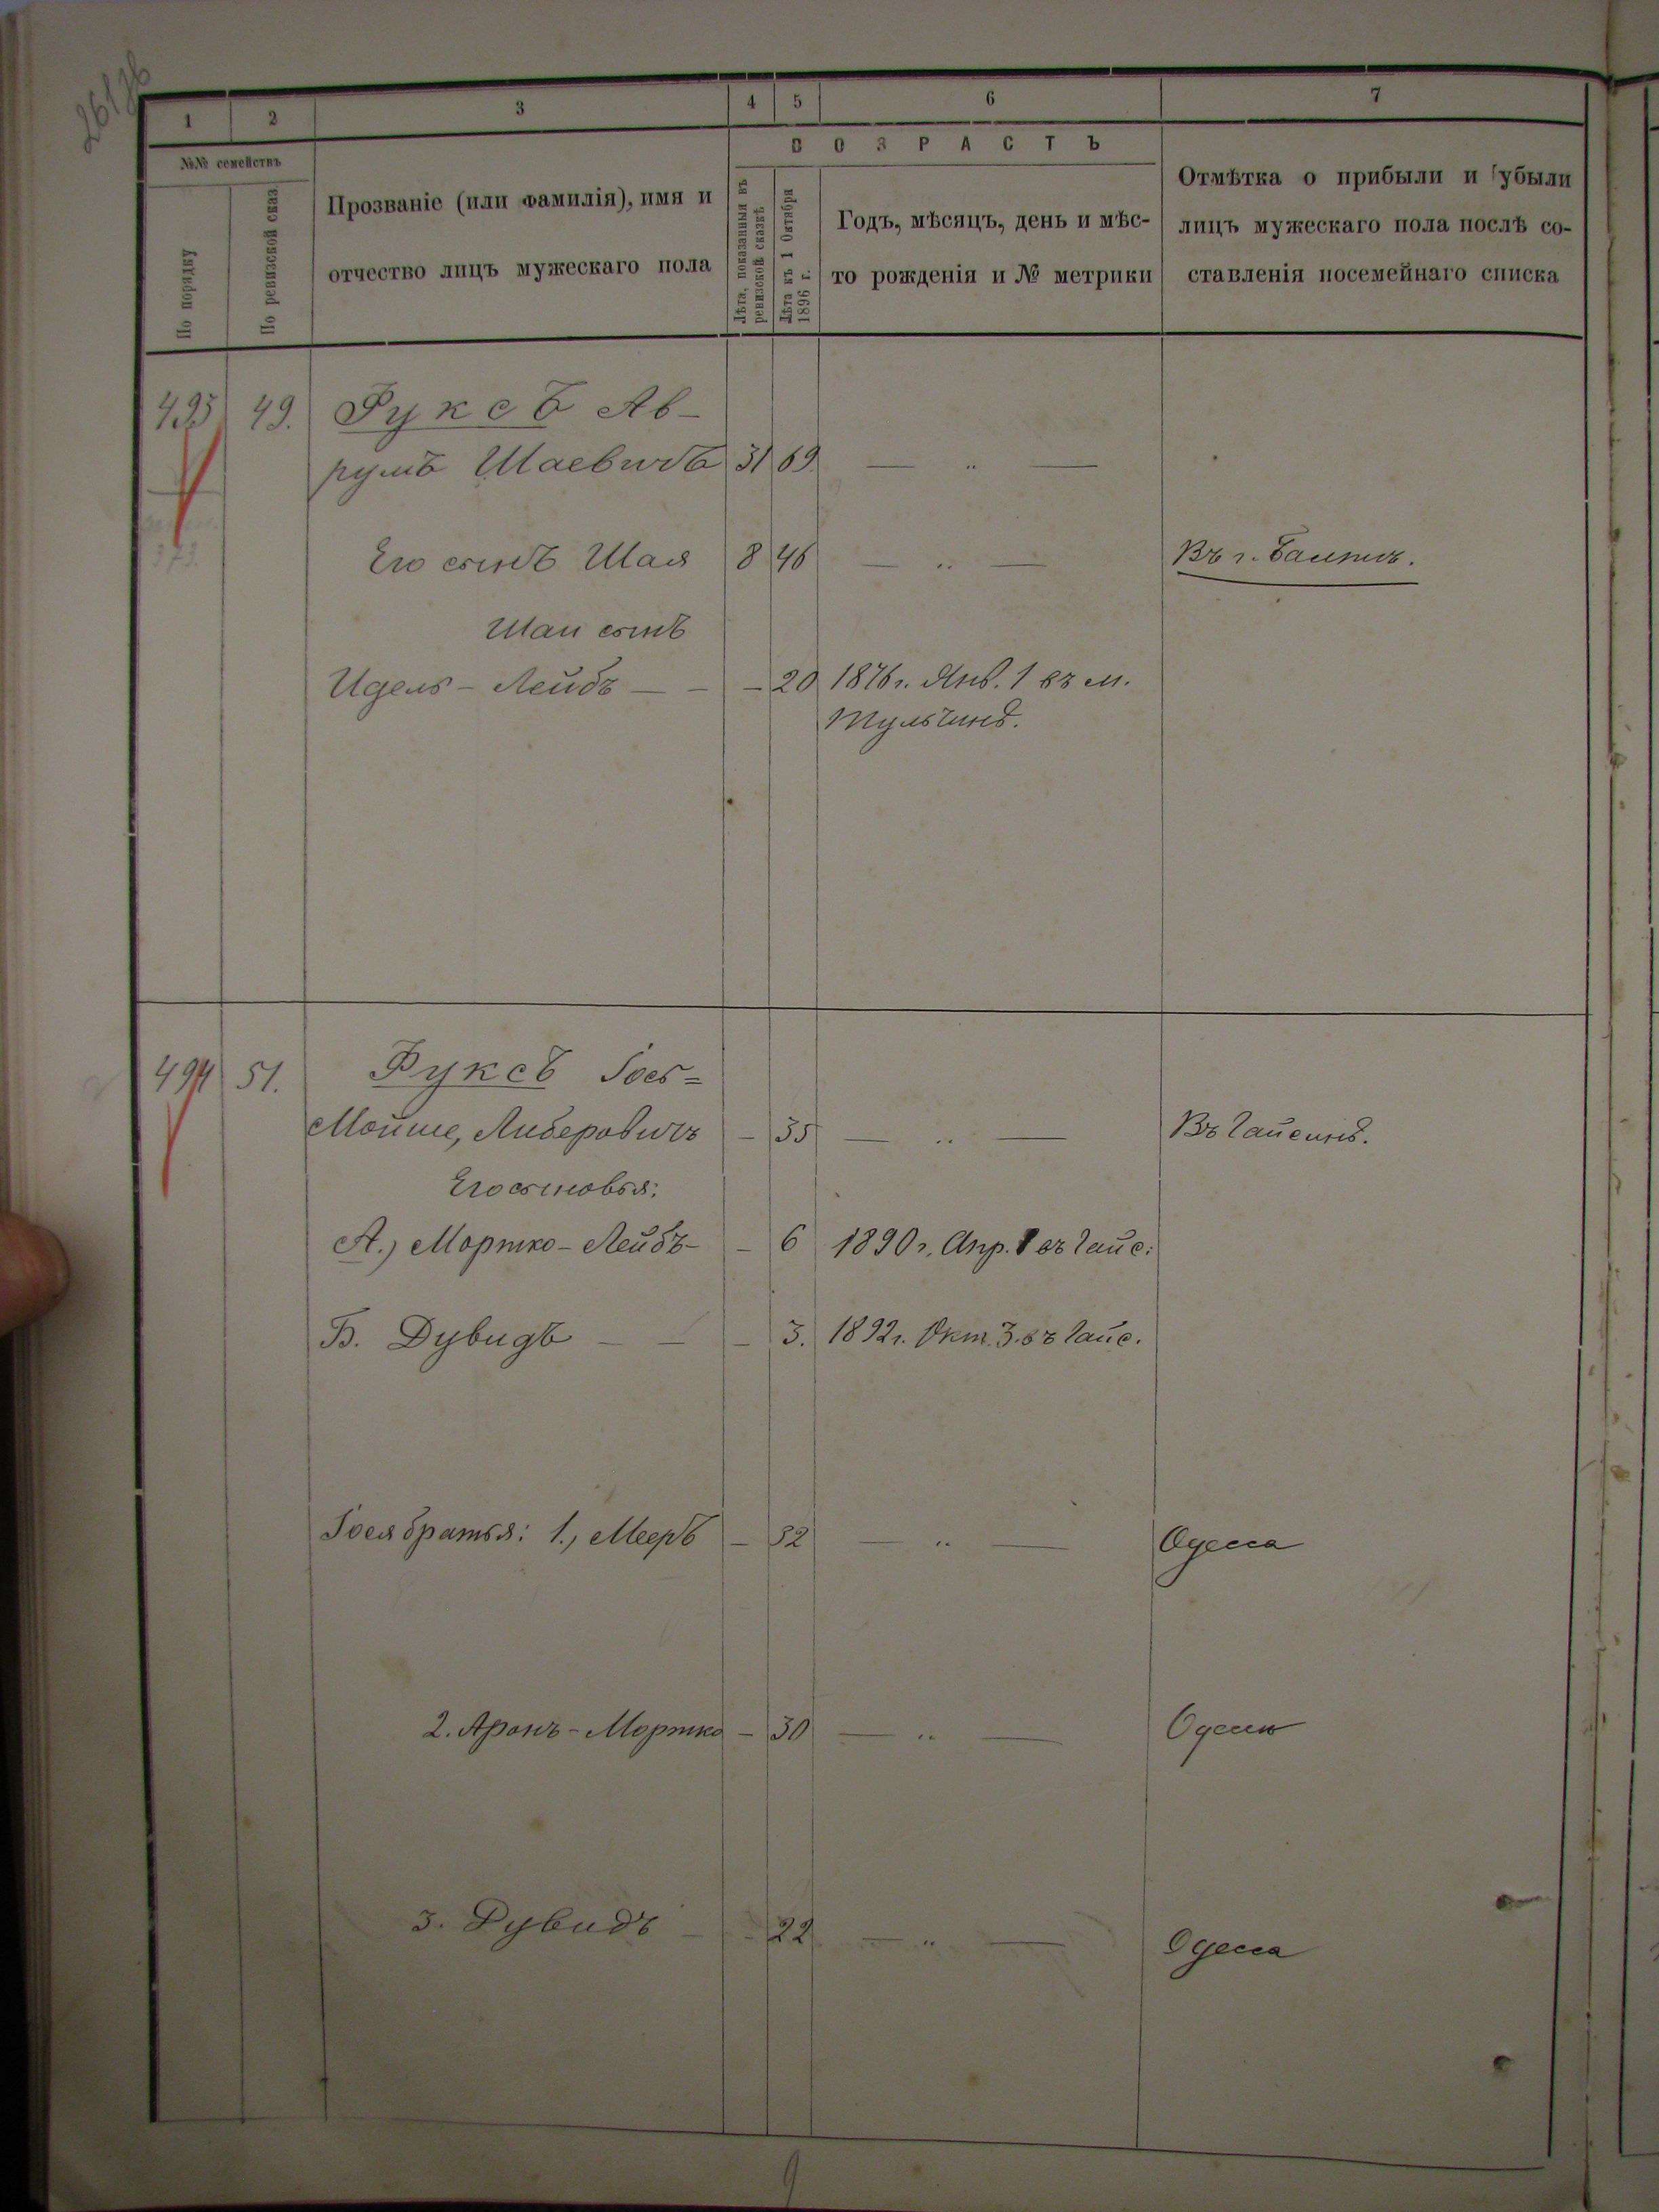 1 2 3 4 5 6 7
№№ семействъ
По порядку
По ревизской сказ
Прозваніе (или фамилія), имя и
отчество лицъ мужескаго пола
ВОЗРАСТЪ
Лѣта, показанныя въ
ревизской сказкѣ
Лѣта къ 1 Октября
1896 г.
Годъ, мѣсяцъ, день и мѣс-
то рожденія и № метрики
Отмѣтка о прибыли и убыли
лицъ мужескаго пола послѣ со-
ставленія посемейнаго списка
493 49. Фуксъ Ав-
румъ Шаевичъ 31 69 — „ —
373.
Его сынъ Шая 8 46 — „ — Въ г. Балтѣ.
Шаи сынъ
Идель-Лейбъ — - - 20 1876 г. Янв. 1 въ м.
Тульчинѣ.
494 51. Фуксъ Іось=
Мойше, Либеровичъ - 35 — „ — Въ Гайсинѣ.
Его сыновья:
А.) Мортко-Лейбъ- - 6 1890 г. Апр. 1 въ Гайс:
Б. Дувидъ — — - 3. 1892 г. Окт. 3. въ Гайс.
Іося братья: 1., Мееръ - 32 — „ — Одесса
2. Аронъ-Мортко - 30 — „ — Одесса
3. Дувидъ - - 22 — „ — Одесса